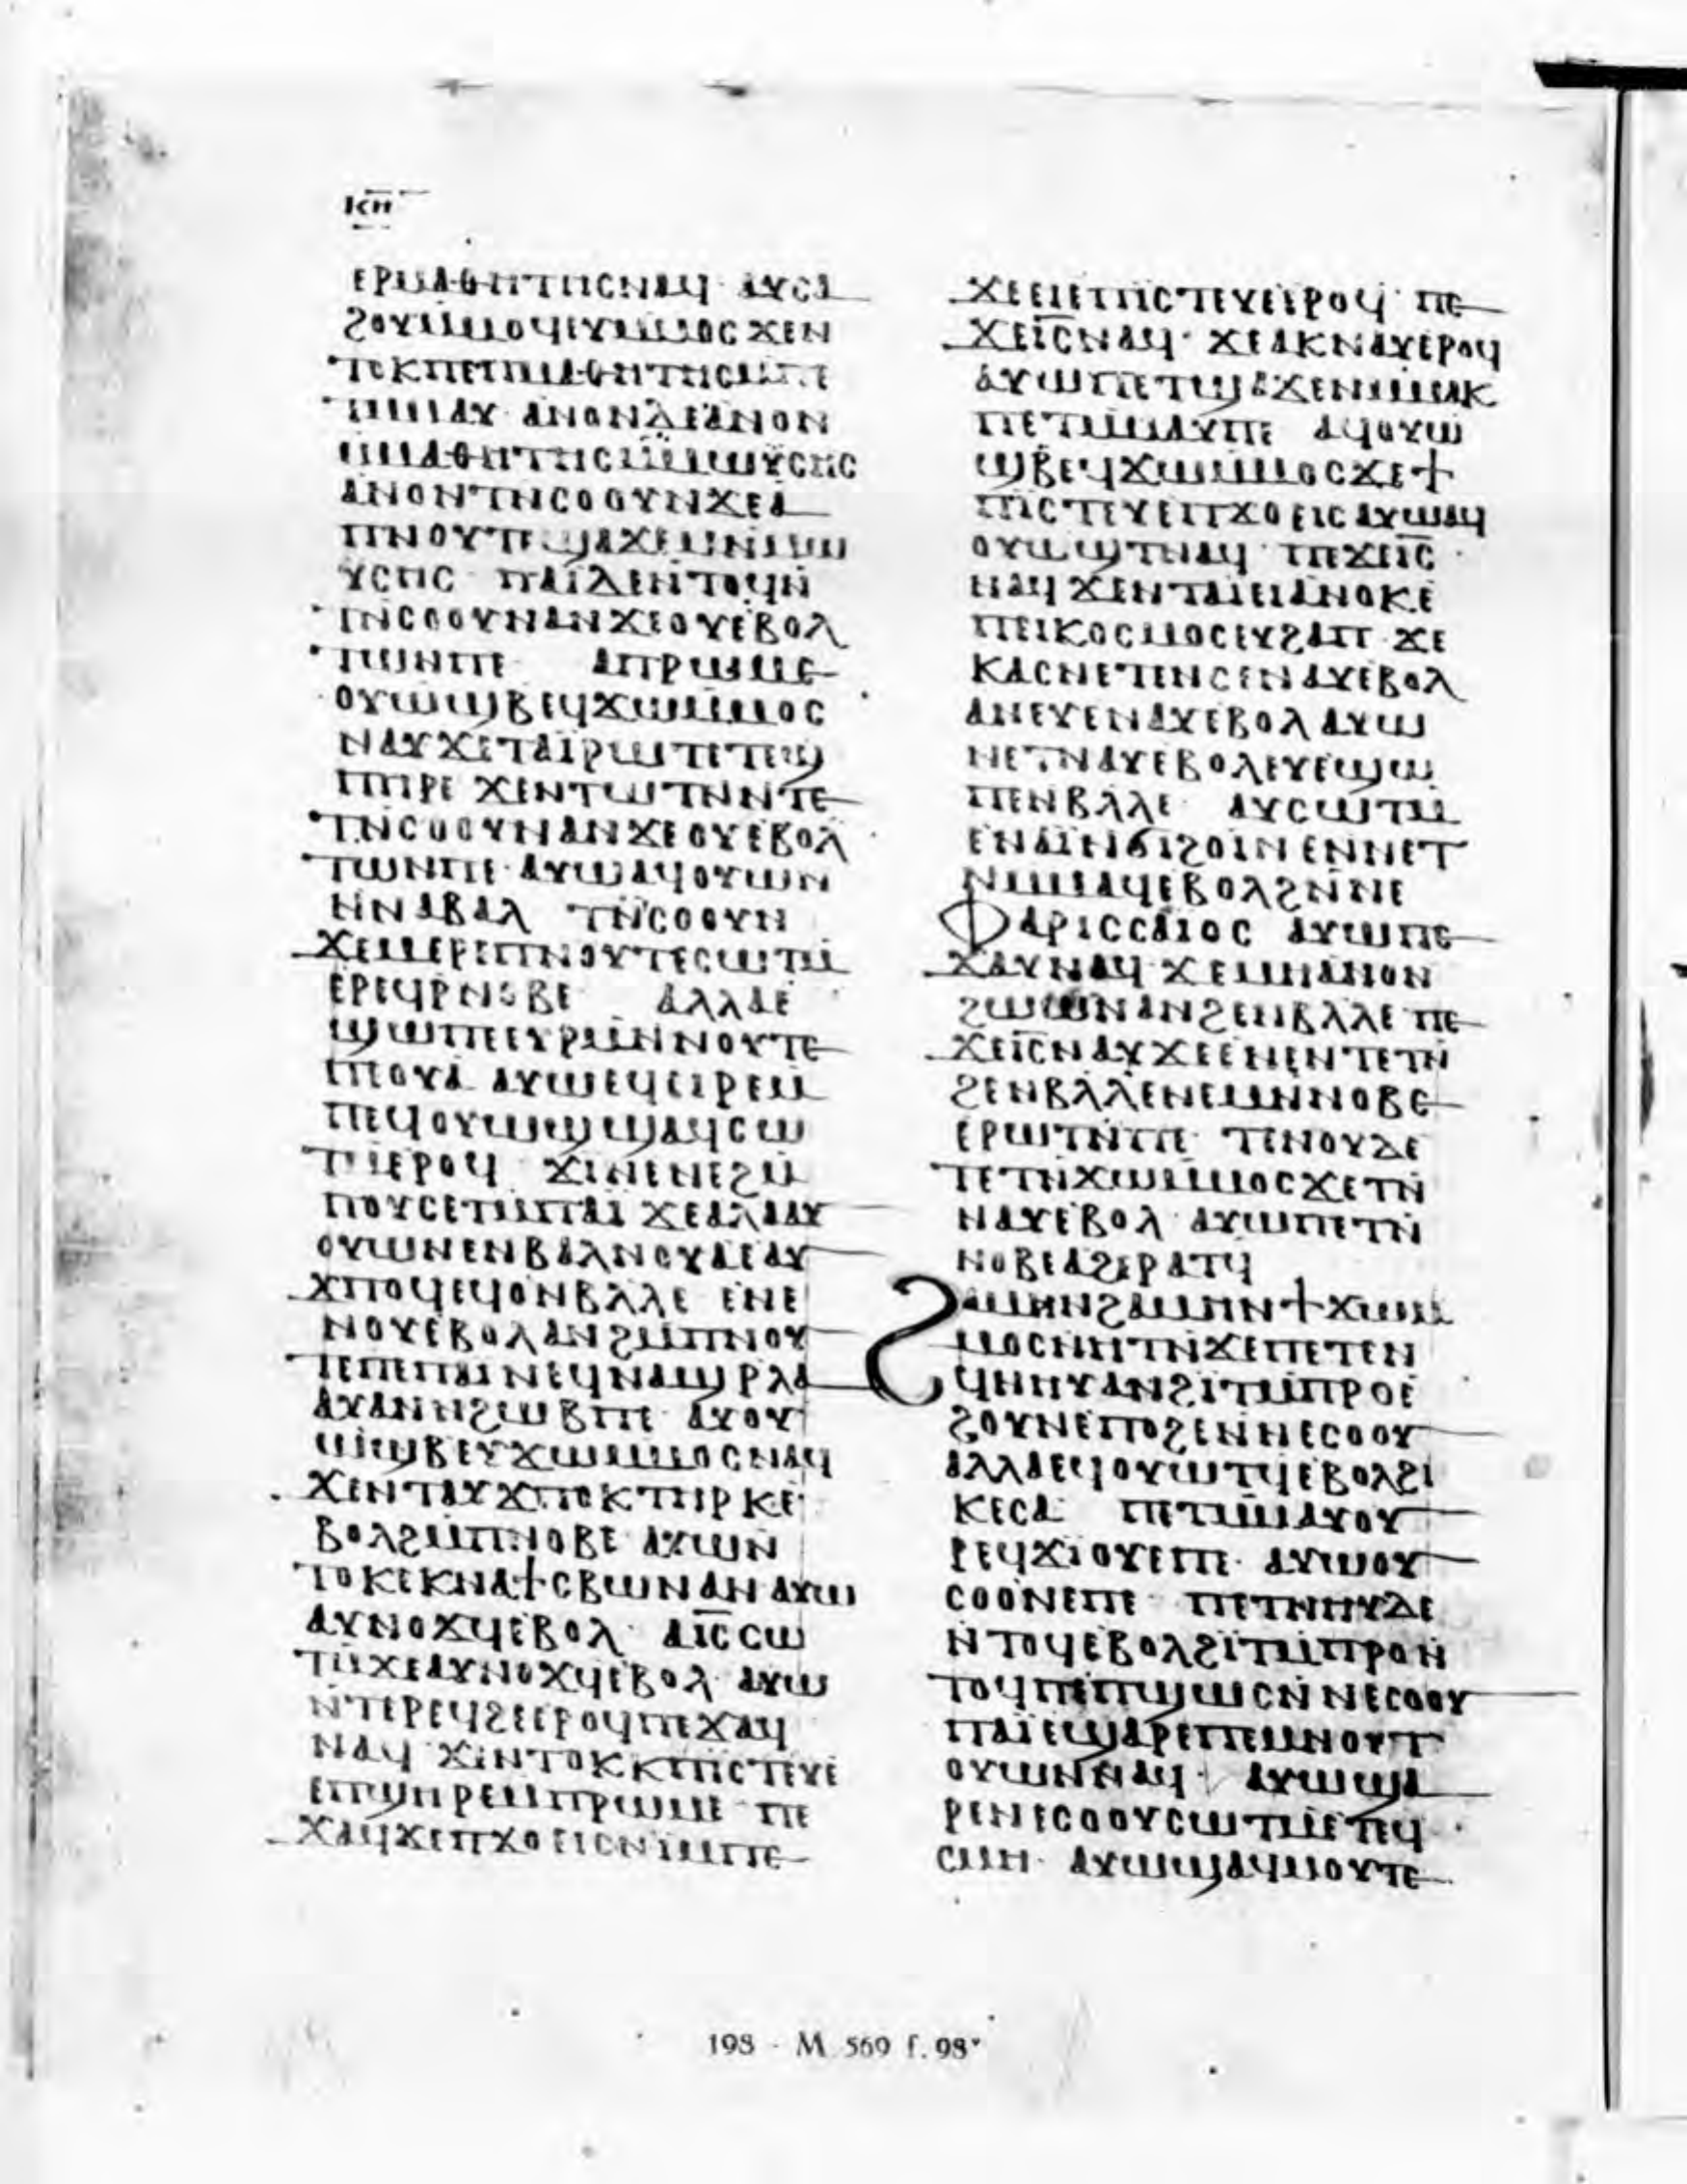 ⲕⲏ
ⲉⲣⲙⲁⲑⲏⲧⲏⲥⲛⲁϥ ⲁⲩⲥⲁ
ϩⲟⲩⲙⲙⲟϥⲉⲩϫⲱⲙⲙⲟⲥ ϫⲉⲛ
ⲧⲟⲕⲡⲉⲡⲙⲁⲑⲏⲧⲏⲥⲙⲡⲉ
ⲧⲙⲙⲁⲩ ⲁⲛⲟⲛⲇⲉⲁⲛⲟⲛ
ⲙⲙⲁⲑⲏⲧⲏⲥⲙⲙⲱⲩⲥⲏⲥ
ⲁⲛⲟⲛⲧⲛⲥⲟⲟⲩⲛϫⲉⲁ
ⲡⲛⲟⲩⲧⲉϣⲁϫⲉⲙⲛⲙⲱ
ⲩⲥⲏⲥ ⲡⲁⲓⲇⲉⲛⲧⲟϥⲛ
ⲧⲛⲥⲟⲟⲩⲛⲁⲛϫⲉⲟⲩⲉⲃⲟⲗ
ⲧⲱⲛⲡⲉ ⲁⲡⲣⲱⲙⲉ
ⲟⲩⲱϣⲃⲉϥϫⲱⲙⲙⲟⲥ
ⲛⲁⲩϫⲉⲧⲁⲓⲣⲱⲧⲉⲧⲉϣ
ⲡⲏⲣⲉ ϫⲉⲛⲧⲱⲧⲛⲛⲧⲉ
ⲧⲛⲥⲟⲟⲩⲛⲁⲛϫⲉⲟⲩⲉⲃⲟⲗ
ⲧⲱⲛⲡⲉ ⲁⲩⲱⲁϥⲟⲩⲱⲛ
ⲛⲛⲁⲃⲁⲗ ⲧⲛⲥⲟⲟⲩⲛ
ϫⲉⲙⲉⲣⲉⲡⲛⲟⲩⲧⲉⲥⲱⲧⲙ
ⲉⲣⲉϥⲣⲛⲟⲃⲉ ⲁⲗⲗⲁⲉ
ϣⲱⲡⲉⲉⲩⲣⲙⲛⲛⲟⲩⲧⲉ
ⲡⲉⲟⲩⲁ ⲁⲩⲱⲉϥⲉⲓⲣⲉⲙ
ⲡⲉϥⲟⲩⲱϣϣⲁϥⲥⲱ
ⲧⲙⲉⲣⲟϥ ϫⲓⲛⲉⲛⲉϩⲙ
ⲡⲟⲩⲥⲉⲧⲙⲡⲁⲓ ϫⲉⲁⲗⲁⲁⲩ
ⲟⲩⲱⲛⲉⲛⲃⲁⲗⲛⲟⲩⲁⲉⲁⲩ
ϫⲡⲟϥⲉϥⲟⲛⲃⲗⲗⲉ ⲉⲛⲉ
ⲛⲟⲩⲉⲃⲟⲗⲁⲛϩⲙⲡⲛⲟⲩ
ⲧⲉⲡⲉⲡⲁⲓ ⲛⲉϥⲛⲁϣⲣⲗⲁ
ⲁⲩⲁⲛⲛϩⲱⲃⲡⲉ ⲁⲩⲟⲩ
ⲱϣⲃⲉⲩϫⲱⲙⲙⲟⲥⲛⲁϥ
ϫⲉⲛⲧⲁⲩϫⲡⲟⲕⲧⲏⲣⲕⲉ
ⲃⲟⲗϩⲙⲡⲛⲟⲃⲉ ⲁⲩⲱⲛ
ⲧⲟⲕⲉⲕⲛⲁϯⲥⲃⲱⲛⲁⲛ ⲁⲩⲱ
ⲁⲩⲛⲟϫϥⲉⲃⲟⲗ ⲁⲓⲥⲥⲱ
ⲧⲙϫⲉⲁⲩⲛⲟϫϥⲉⲃⲟⲗ ⲁⲩⲱ
ⲛⲧⲉⲣⲉϥϩⲉⲉⲣⲟϥⲡⲉϫⲁϥ
ⲛⲁϥ ϫⲓⲛⲧⲟⲕⲕⲡⲓⲥⲧⲉⲩⲉ
ⲉⲡϣⲏⲣⲉⲙⲡⲣⲱⲙⲉ ⲡⲉ
ϫⲁϥϫⲉⲡϫⲟⲉⲓⲥⲛⲓⲙⲡⲉ
ϫⲉⲉⲓⲉⲡⲓⲥⲧⲉⲩⲉⲉⲣⲟϥ ⲡⲉ
ϫⲉⲓⲥⲛⲁϥ ϫⲉⲁⲕⲛⲁⲩⲉⲣⲟϥ
ⲁⲩⲱⲡⲉⲧϣⲁϫⲉⲛⲙⲙⲁⲕ
ⲡⲉⲧⲙⲙⲁⲩⲡⲉ ⲁϥⲟⲩⲱ
ϣⲃⲉϥϫⲱⲙⲙⲟⲥϫⲉϯ
ⲡⲓⲥⲧⲉⲩⲉⲡϫⲟⲉⲓⲥ ⲁⲩⲱⲁϥ
ⲟⲩⲱϣⲧⲛⲁϥ ⲡⲉϫⲉⲓⲥ
ⲛⲁϥ ϫⲉⲛⲧⲁⲓⲉⲓⲁⲛⲟⲕⲉ
ⲡⲉⲓⲕⲟⲥⲙⲟⲥⲉⲩϩⲁⲡ ϫⲉ
ⲕⲁⲥⲛⲉⲧⲉⲛⲥⲉⲛⲁⲩⲉⲃⲟⲗ
ⲁⲛⲉⲩⲉⲛⲁⲩⲉⲃⲟⲗ ⲁⲩⲱ
ⲛⲉⲧⲛⲁⲩⲉⲃⲟⲗⲉⲩⲉϣⲱ
ⲡⲉⲛⲃⲗⲗⲉ ⲁⲩⲥⲱⲧⲙ
ⲉⲛⲁⲓⲛϭⲓϩⲟⲓⲛⲉⲛⲛⲉⲧ
ⲛⲙⲙⲁϥⲉⲃⲟⲗϩⲛⲛⲉ
ⲫⲁⲣⲓⲥⲥⲁⲓⲟⲥ ⲁⲩⲱⲡⲉ
ϫⲁⲩⲛⲁϥ ϫⲉⲙⲏⲁⲛⲟⲛ
ϩⲱⲱⲛⲁⲛϩⲉⲛⲃⲗⲗⲉ ⲡⲉ
ϫⲉⲓⲥⲛⲁⲩ ϫⲉⲉⲛⲉⲛⲧⲉⲧⲛ
ϩⲉⲛⲃⲗⲗⲉⲛⲉⲙⲛⲛⲟⲃⲉ
ⲉⲣⲱⲧⲛⲡⲉ ⲧⲉⲛⲟⲩⲇⲉ
ⲧⲉⲧⲛϫⲱⲙⲙⲟⲥϫⲉⲧⲛ
ⲛⲁⲩⲉⲃⲟⲗ ⲁⲩⲱⲡⲉⲧⲛ
ⲛⲟⲃⲉⲁϩⲉⲣⲁⲧϥ
ϩⲁⲙⲏⲛϩⲁⲙⲏⲛϯϫⲱⲙ
ⲙⲟⲥⲛⲏⲧⲛϫⲉⲡⲉⲧⲉⲛ
ϥⲛⲏⲩⲁⲛϩⲓⲧⲙⲡⲣⲟⲉ
ϩⲟⲩⲛⲉⲡⲟϩⲉⲛⲛⲉⲥⲟⲟⲩ
ⲁⲗⲗⲁⲉϥⲟⲩⲱⲧϥⲉⲃⲟⲗϩⲓ
ⲕⲉⲥⲁ ⲡⲉⲧⲙⲙⲁⲩⲟⲩ
ⲣⲉϥϫⲓⲟⲩⲉⲡⲉ ⲁⲩⲱⲟⲩ
ⲥⲟⲟⲛⲉⲡⲉ ⲡⲉⲧⲛⲏⲩⲇⲉ
ⲛⲧⲟϥⲉⲃⲟⲗϩⲓⲧⲙⲡⲣⲟⲛ
ⲧⲟϥⲡⲉⲡϣⲱⲥⲛⲛⲉⲥⲟⲟⲩ
ⲡⲁⲓⲉϣⲁⲣⲉⲡⲉⲙⲛⲟⲩⲧ
ⲟⲩⲱⲛⲛⲁϥ ⲁⲩⲱϣⲁ
ⲣⲉⲛⲉⲥⲟⲟⲩⲥⲱⲧⲙⲉⲧⲉϥ
ⲥⲙⲏ ⲁⲩⲱϣⲁϥⲙⲟⲩⲧⲉ
198 - M 569 f. 98ᵛ